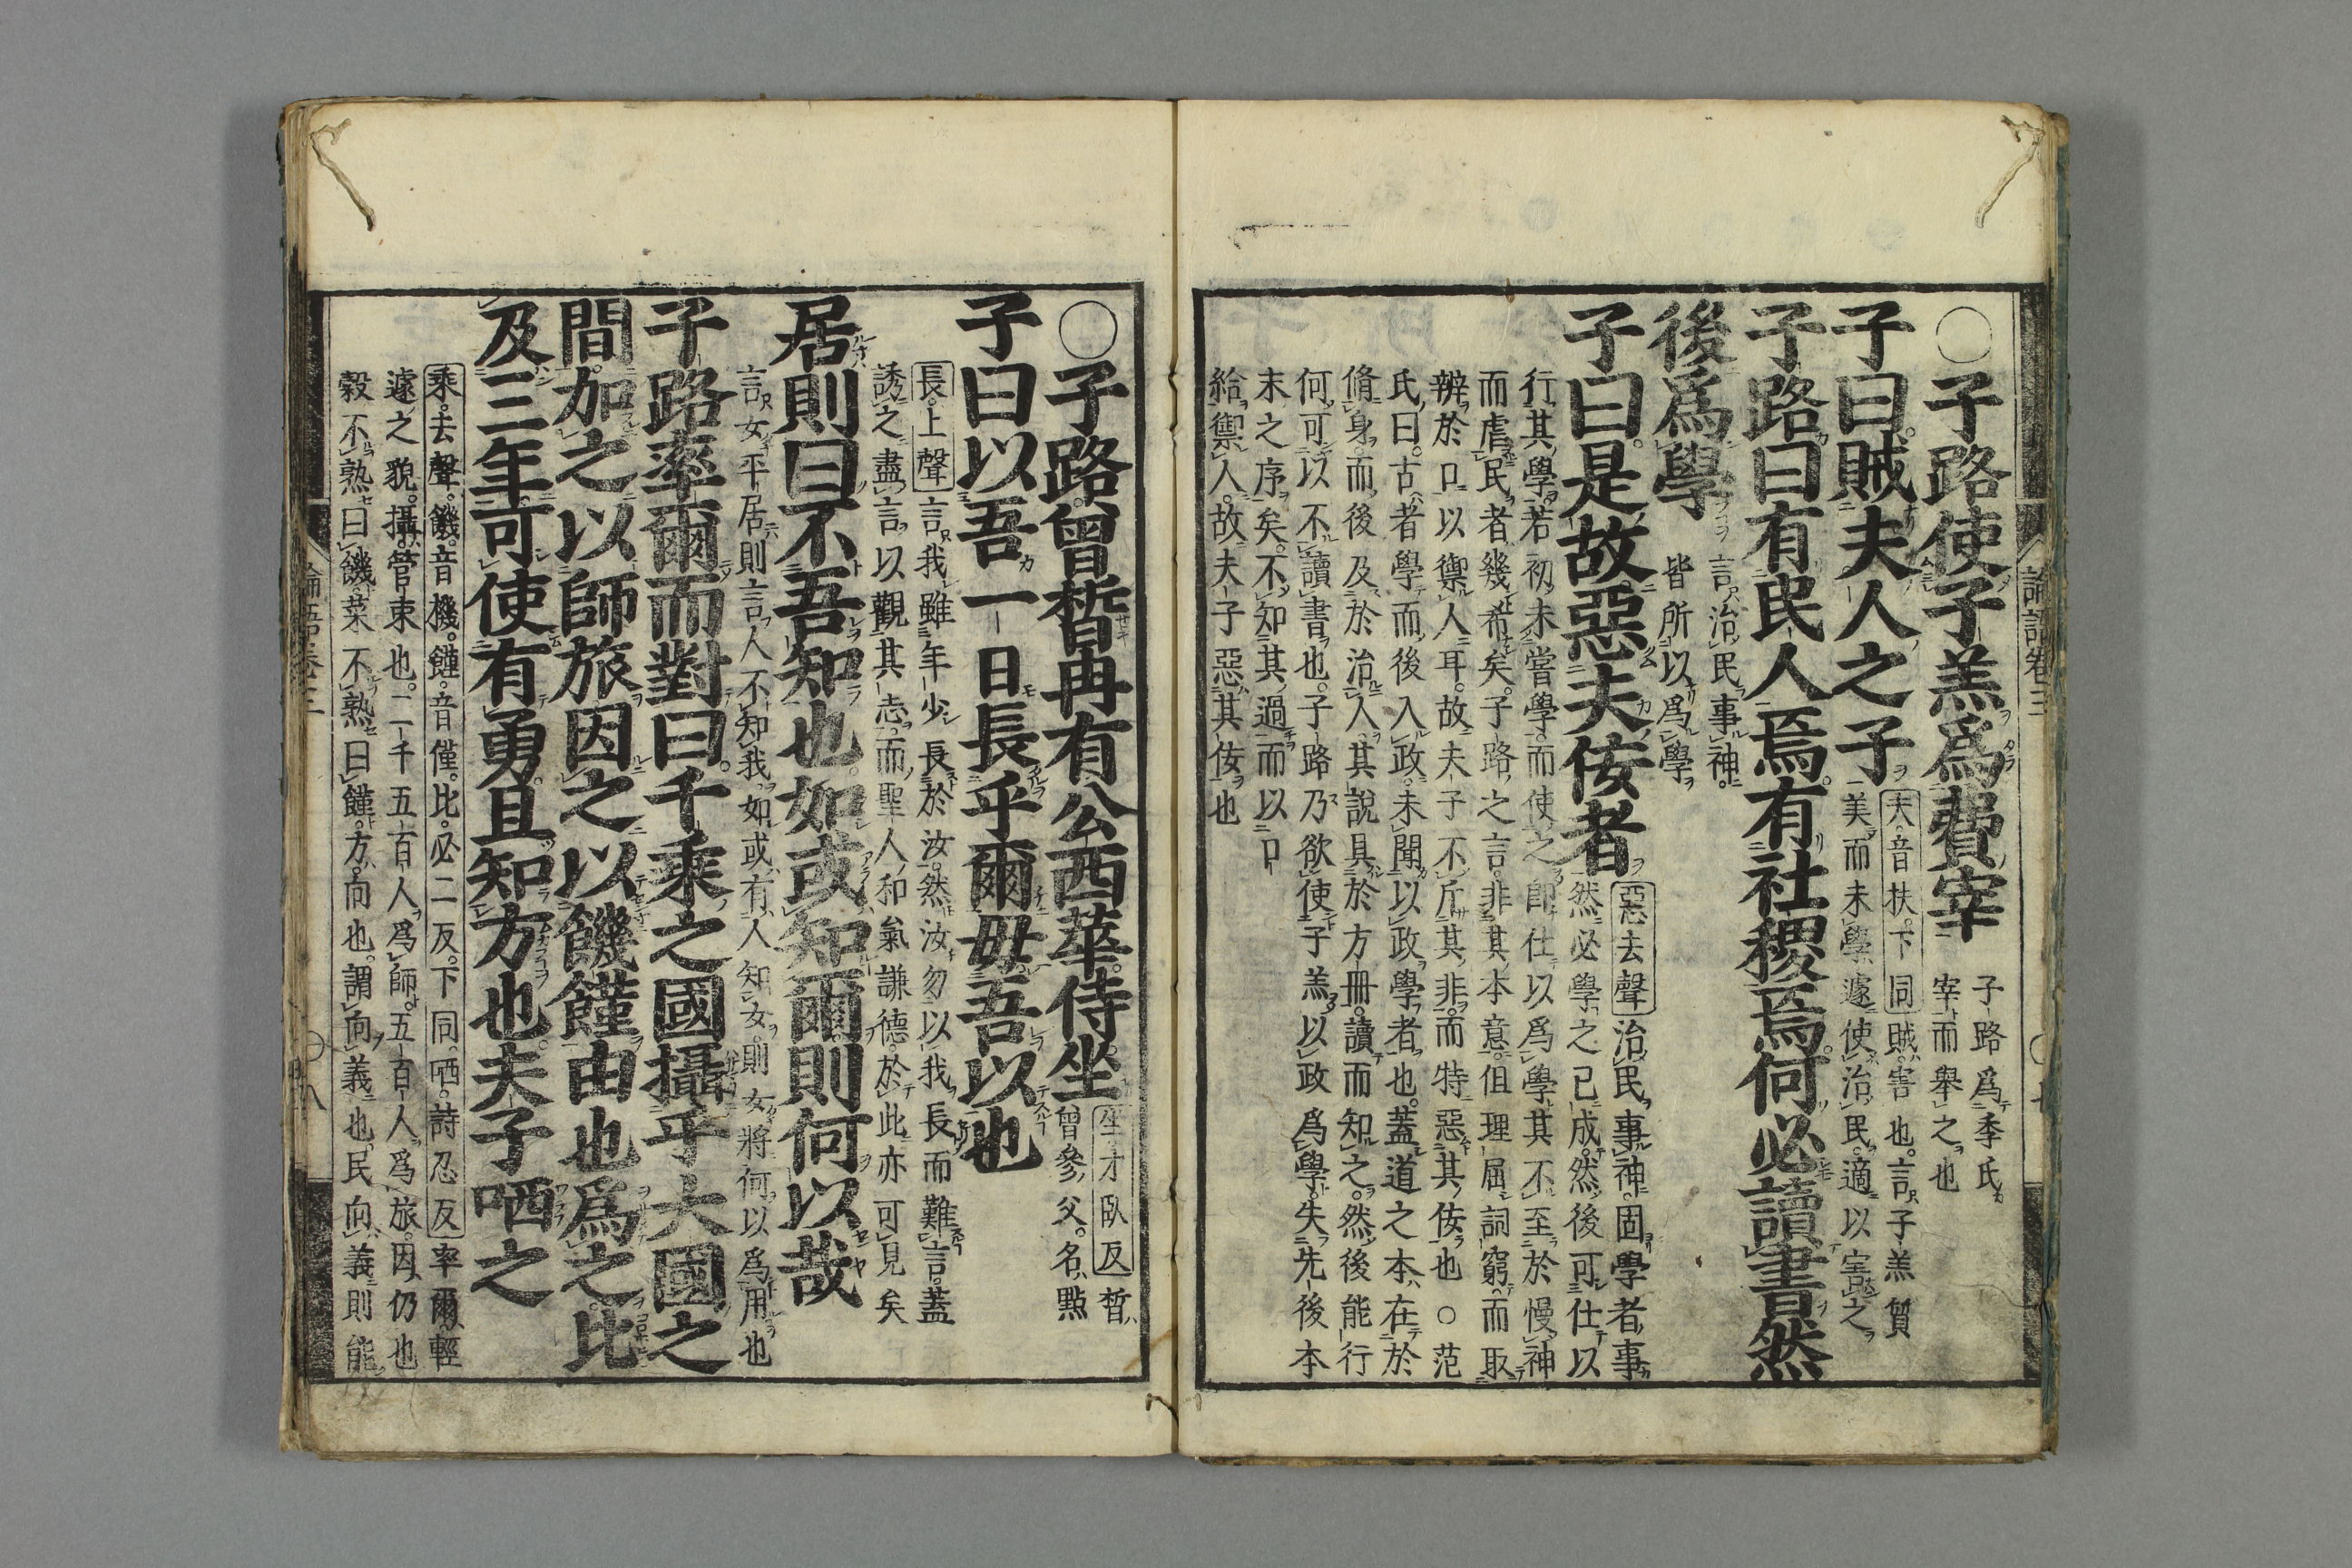 論語卷三　〇七
〇子路使子羔爲費宰
子路爲季氏
宰而舉之也
子曰。賊夫人之子
夫音扶。下同。賊害也。言子羔質
美而未學。遽使治民。適以害之
子路曰有民人焉。有社稷焉。何必讀書然
後爲學
言治民事神。
皆所以爲學
子曰。是故惡夫佞者
惡去聲治民事神。固學者事
然必學之已成。然後可仕以
行其學。若初未嘗學。而使之卽仕以爲學其不至於慢神
而虐民者幾希矣。子路之言。非其本意。但理屈詞窮。而取
辨於口以禦人耳。故夫子不斥其非。而特惡其佞也○范
氏曰。古者學而後入政。未聞以政學者也。蓋道之本在於
脩身。而後及於治人。其說具於方冊。讀而知之。然後能行
何可以不讀書也。子路乃欲使子羔以政爲學。失先後本
末之序矣。不知其過而以口
給禦人。故夫子惡其佞也
〇子路。曾皙。冉有。公西華。侍坐
坐才臥反皙
曾參父。名點
子曰以吾一日長乎爾。毋吾以也
長。上聲言我雖年少長於汝。然汝勿以我長而難言。蓋
誘之盡言以觀其志。而聖人和氣謙德。於此亦可見矣
居則曰不吾知也。如或知爾。則何以哉
言女平居則言人不知我。如或有人知女。則女將何以爲用也
子路率爾而對曰。千乘之國攝乎大國之
間。加之以師旅。因之以饑饉。由也爲之。比
及三年。可使有勇。且知方也。夫子哂之
乘。去聲。饑。音機。饉。音僅。比。必二反。下同。哂。詩忍反率爾。輕
遽之貌。攝。管束也。二千五百人爲師。五百人爲旅。因。仍也
穀不熟曰饑。菜不熟曰饉。方。向也。謂向義也。民向義則能
論語卷三　〇八